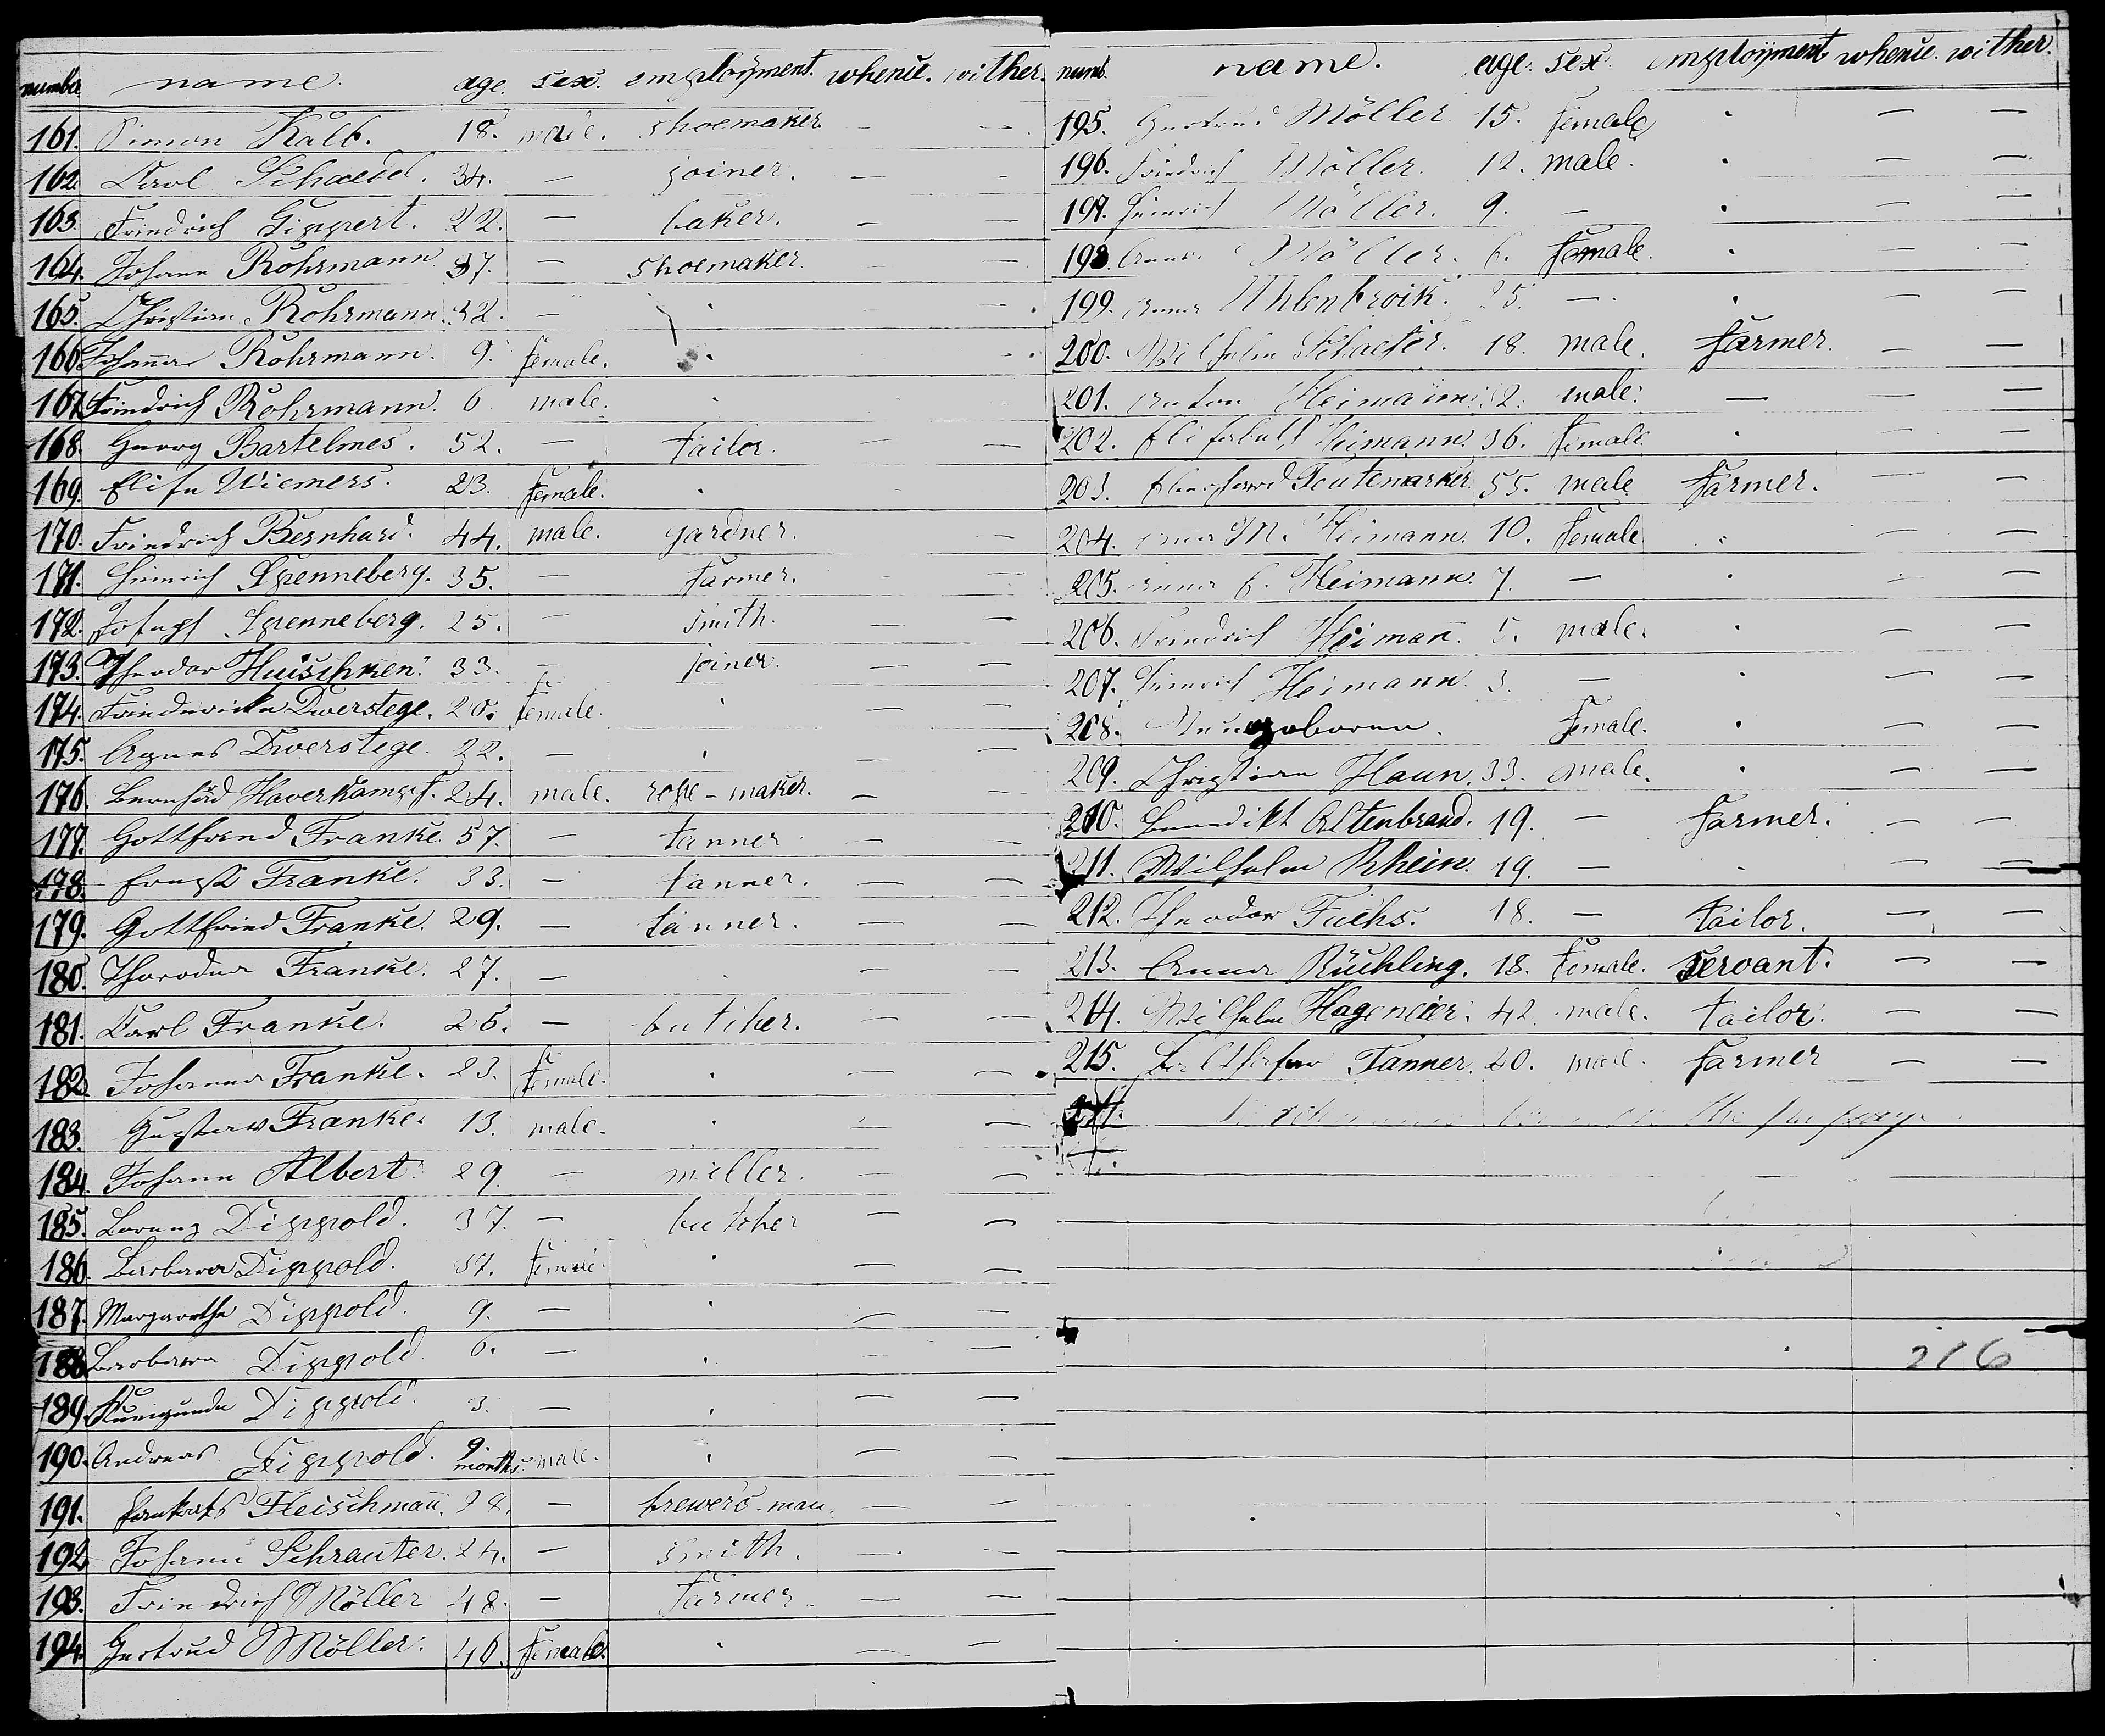 number name. age. sex. employment. whence. wither.
161. Simon Kalb. 18. male. shoemaker — —
162. Carl Schaedel. 34. — joiner. — —
163. Friedrich Gippert. 22. — baker. — —
164. Johann Rohrmann 37. — shoemaker. — —
165. Christian Rohrmann. 32. — . —
166. Johanna Rohrmann. 9. female. .
167. Friedrich Rohrmann. 6 male. .
168. Georg Bartelmes. 52. — tailor. — —
169. Elise Wiemers. 23. female. . — —
170. Friedrich Bernhard. 44. male. gardner. —
171. Heinrich Spenneberg. 35. — farmer. — —
172. Joseph Spenneberg. 25. — smith. — —
173. Theodor Huischken. 33. — joiner. — —
174. Friedericke Dwerstege. 20. female. . — —
175. Agnes Dwerstege. 22. — . — —
176. Bernhard Haverkampf. 24. male. rope-maker. — —
177. Gottfried Franke. 57. — tanner — —
178. Ernst Franke. 33. — tanner. — —
179. Gottfried Franke. 29. — tanner. — —
180. Theodor Franke. 27. — . — —
181. Carl Franke. 26. — butcher. — —
182. Johanna Franke. 23. female. . — —
183. Gustav Franke. 13. male. . — —
184. Johann Albert. 29. — miller. — —
185. Lorenz Dippold. 37. — butcher — —
186. Barbara Dippold. 37. female. . — —
187. Margarethe Dippold. 9. — . — —
188. Barbara Dippold 6. — . — —
189. Kunigunda Dippold. 3. — . — —
190. Andreas Dippold. 9 months. male. . — —
191. Fleischmann. 28. — brewers-man. — —
192. Johann Schrauter. 24. — smith. — —
193. Friedrich Möller 48. — farmer — —
194. Gertrud Möller. 46. female. . — —
numb. name. age. sex. employment. whence. wither.
195. Gertrud Möller. 15. female . — —
196. Friedrich Möller. 12. male. . — —
197. Heinrich Möller. 9. — . — —
198. Anna Möller. 6. female. . — —
199. Anna Uhlenbroik. 25. — . — —
200. Wilhelm Schaefer. 18. male. farmer. — —
201. Anton Heimann male. — —
202. Elisabeth Heimann. 36. female . — —
203. Eberhard Teutemarker 55. male farmer. — —
204. Anna M. Heimann. 10. female. . — —
205. Anna E. Heimann. 7. — . — —
206. Friedrich Heimann. 5. male. . — —
207. Heinrich Heimann. 3. — . — —
208. Neugeboren. female. . — —
209. Christian Haun. 33. male. . — —
210. Benedikt Altenbrand. 19. — farmer. — —
211. Wilhelm Rhein. 19. — . — —
212. Theodor Fuchs. 18. — tailor. — —
213. Anna Rüchling. 18. female. servant. — —
214. Wilhelm Hagemeier. 42. male. tailor. — —
215. Balthasar Tanner. 20. male. farmer — —
216